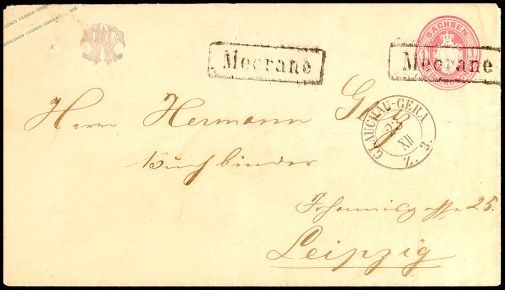 Meerane
SACHSEN
Meerane
GLAUCHAU-GERA
23
XII
Z. 3.
Herrn Hermann
Buchbinder
Johannisgasse 25.
Leipzig